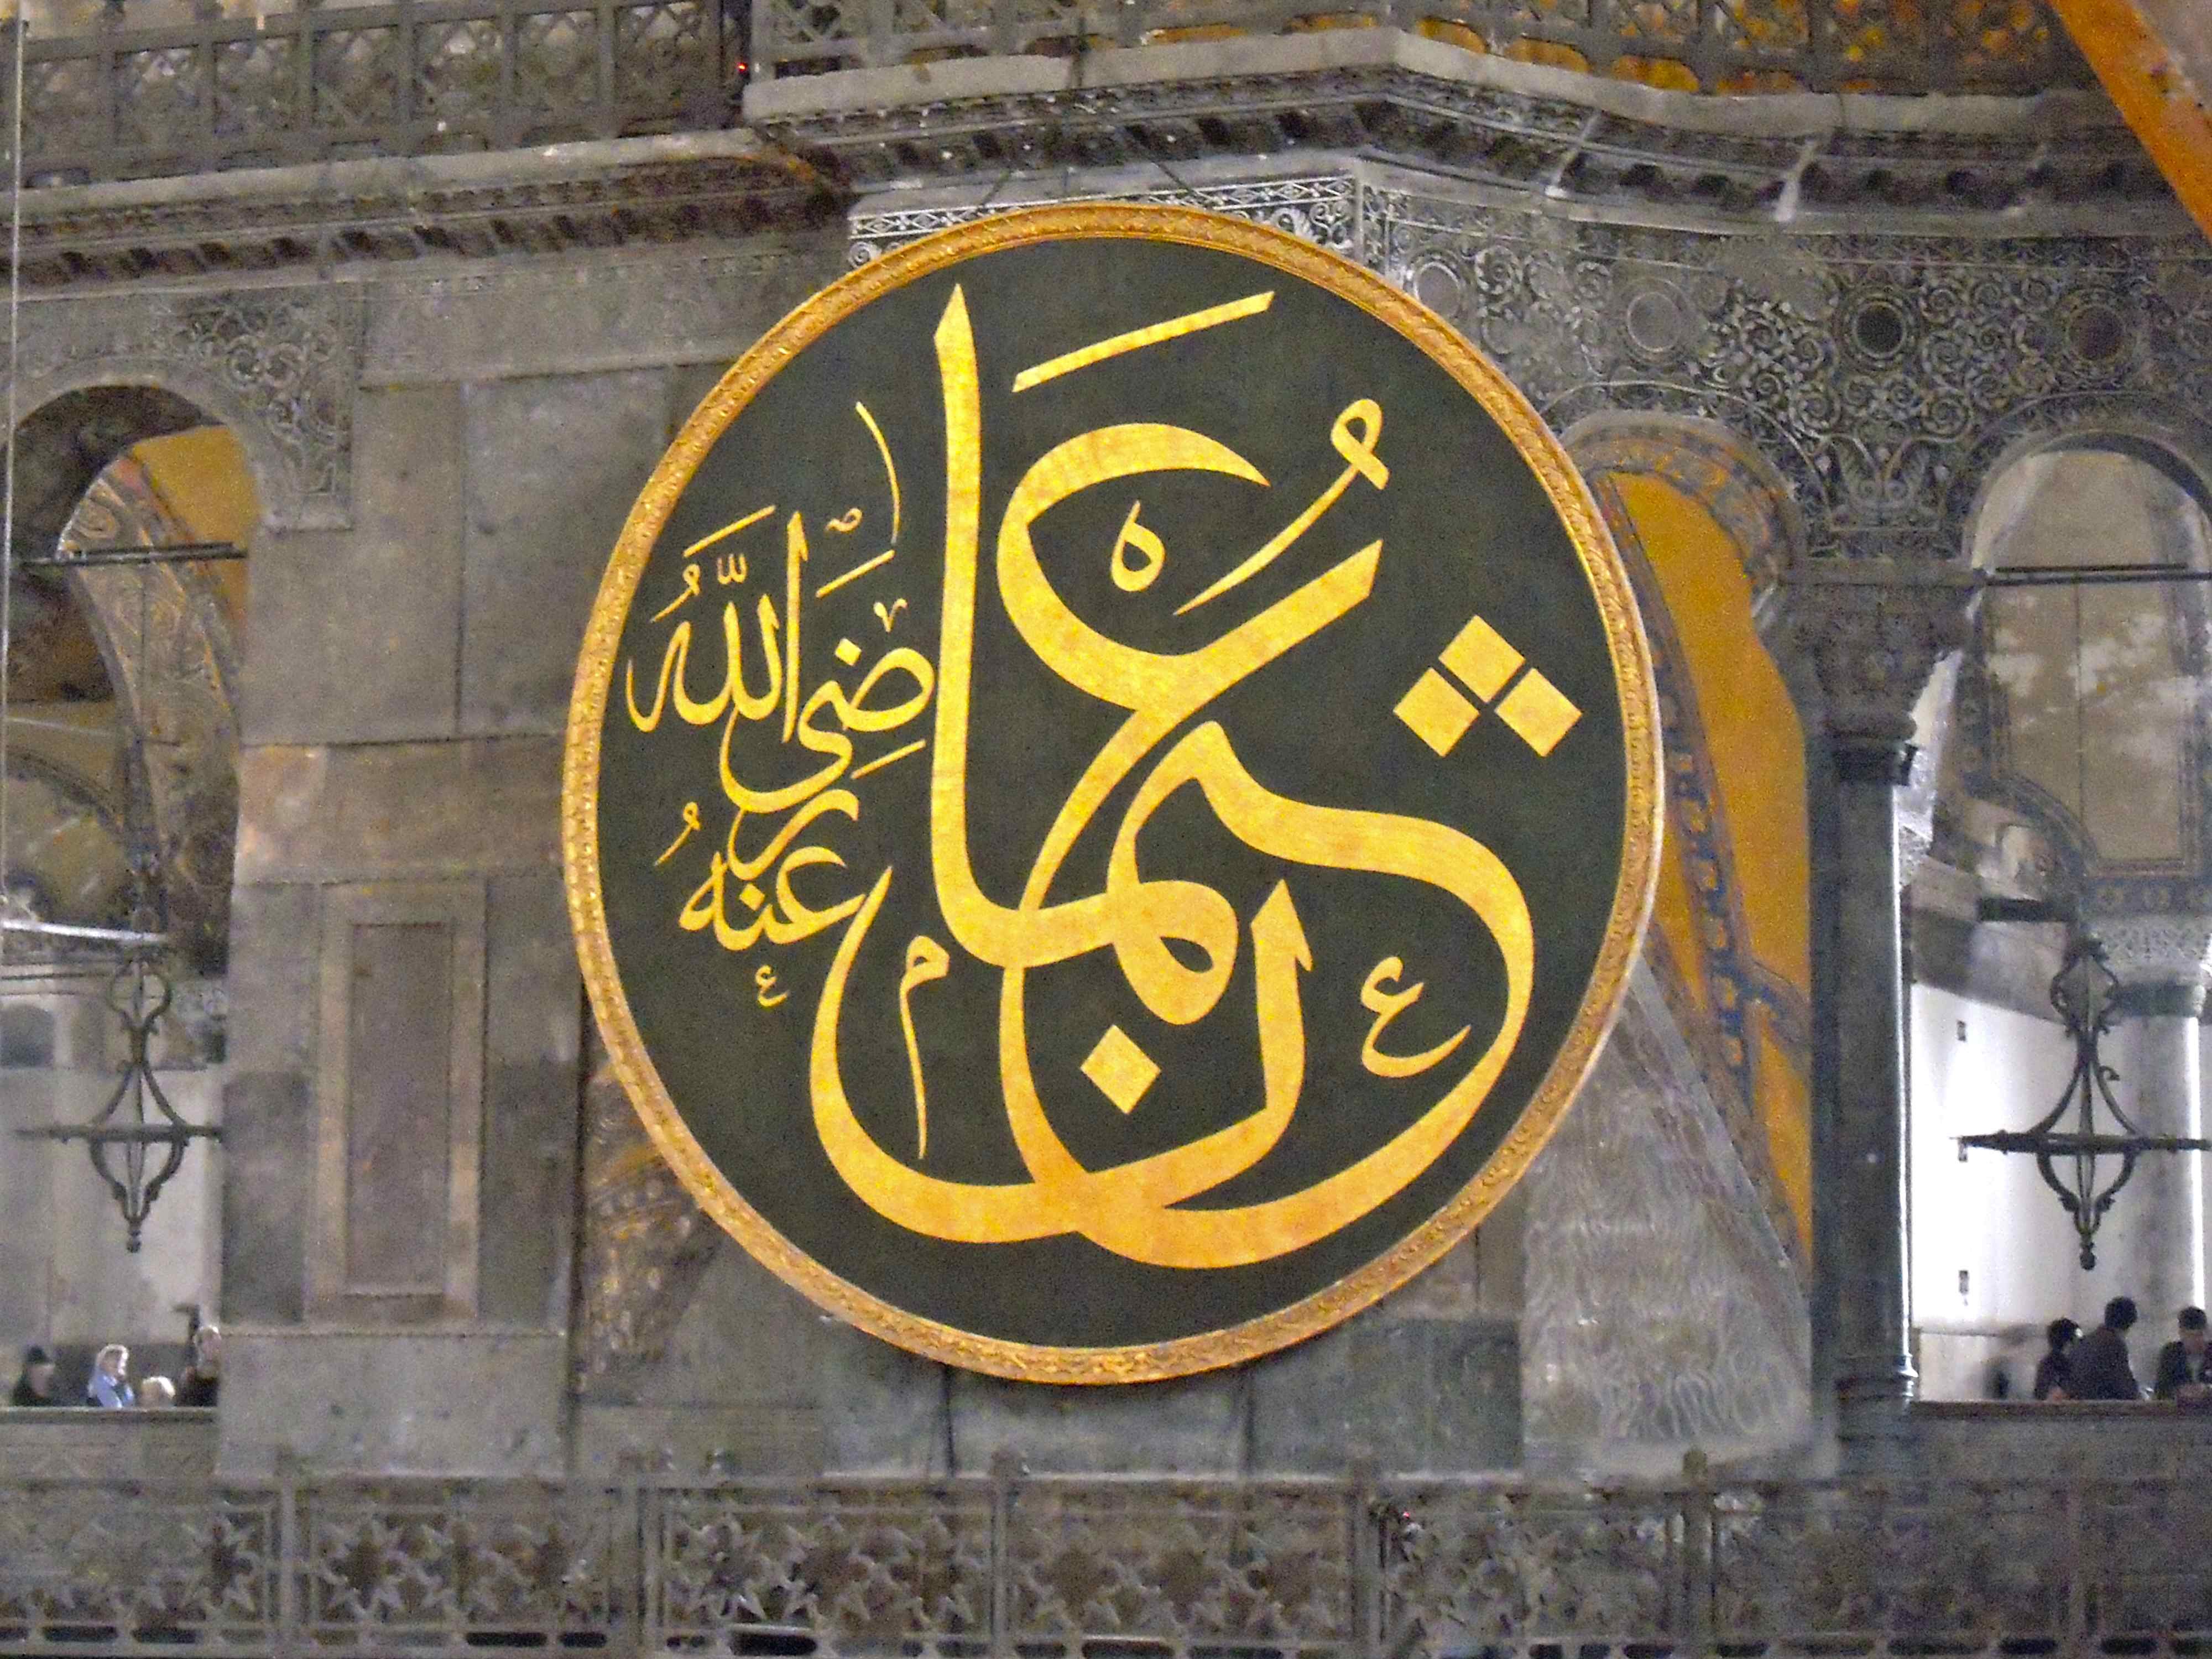 عثمان
رضي الله
عنه